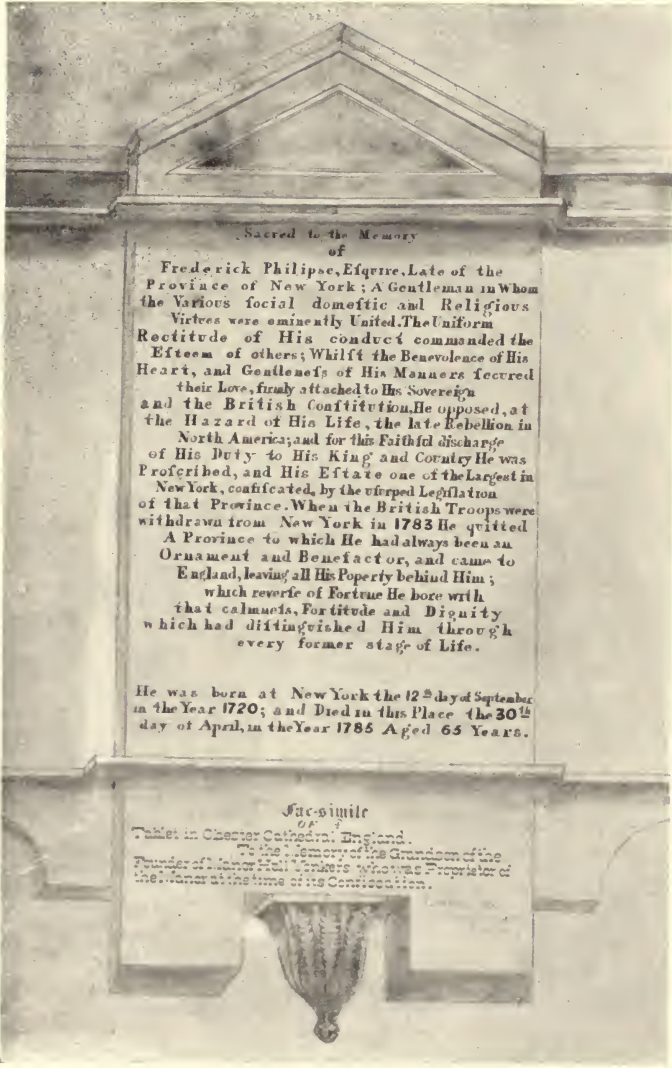 Sacred to the Memory
of
Frederick Philipse, Eſquire, Late of the
Province of New York; A Gentleman in Whom
the Various ſocial domeſtic and Religious
Virtues were eminently United. The Uniform
Rectitude of His conduct commanded the
Eſteem of others; Whilſt the Benevolence of His
Heart, and Gentleneſs of His Manners ſecured
their Love, firmly attached to His Sovereign
and the Britiſh Conſtitution, He oppoſed, at
the Hazard of His Life, the late Rebellion in
North America; and for this Faithful diſcharge
of His Duty to His King and Country He was
Proſcribed, and His Eſtate one of the Largest in
New York, confiſcated, by the uſurped Legiſlation
of that Province. When the Britiſh Troops were
withdrawn from New York in 1783 He quitted
A Province to which He had always been an
Ornament and Benefactor, and came to
England, leaving all His Poperty behind Him;
which reverſe of Fortune He bore with
that calmneſs, Fortitude and Dignity
which had diſtinguiſhed Him through
every former stage of Life.
He was born at New York the 12th day of September
in the Year 1720; and Died in this Place the 30th
day of April, in the Year 1785 Aged 65 Years.
Fac-simile
OF
Tablet in Chester Cathedral England.
To the Memory of the Grandson of the
Founder of Manor Hall Yonkers who was Proprietor of
the Manor at the time of its Confiscation.